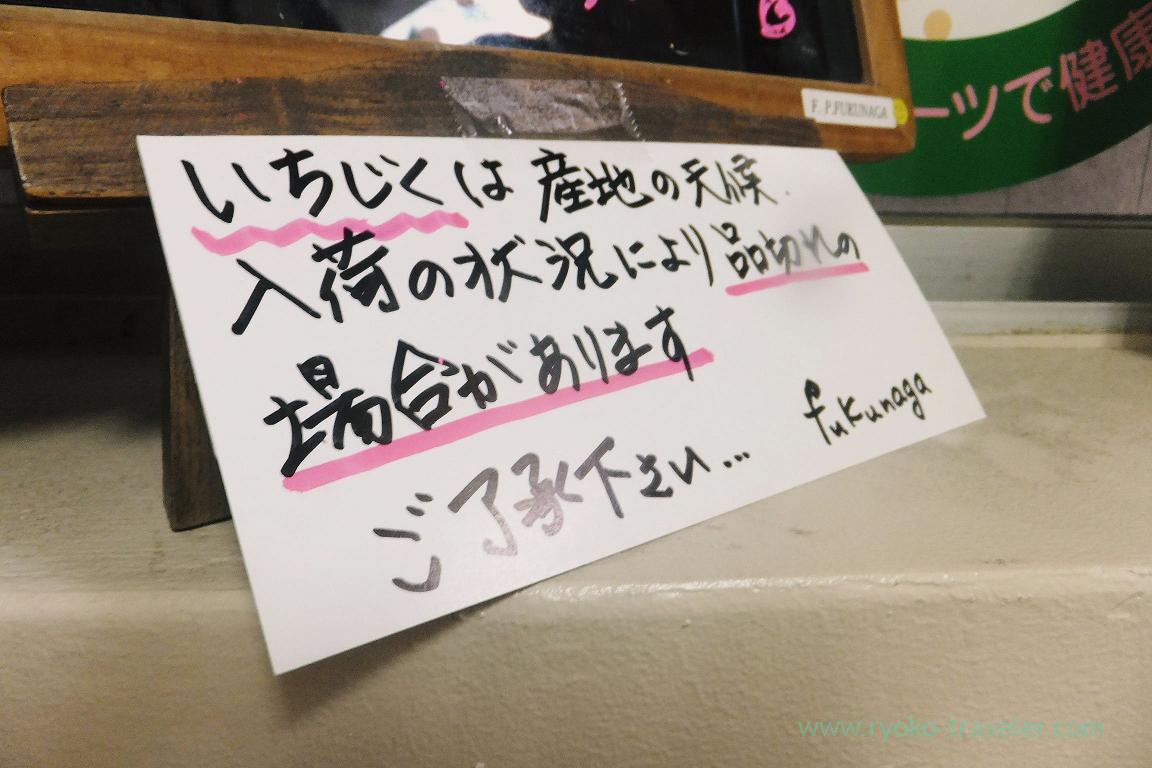 F. P. FUKUNAGA
ーツで健康
いちじくは産地の天候.
入荷の状況により品切れの
場合があります
ご了承下さい...
fukunaga
www.ryoko-traveler.com